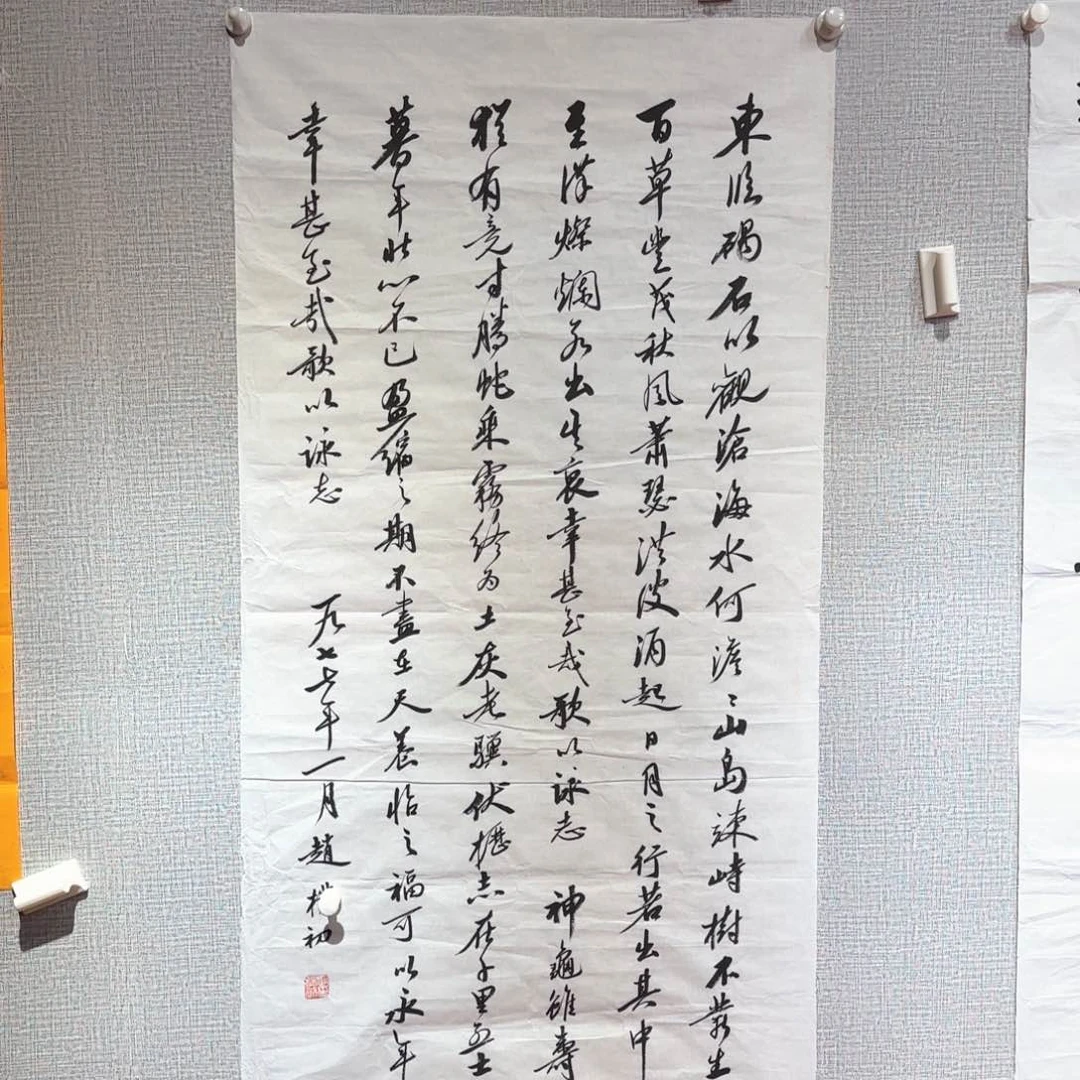 東臨碣石以觀滄海水何澹〻山島竦峙樹不叢生
百草豐茂秋風蕭瑟洪波涌起日月之行若出其中
星漢燦爛若出其裏幸甚至哉歌以詠志 神龜雖壽
猶有竟时騰蛇乘霧終为土灰老驥伏櫪志在千里烈士
暮年壯心不已盈縮之期不盡在天養怡之福可以永年
幸甚至哉歌以詠志 一九七七年一月 趙樸初